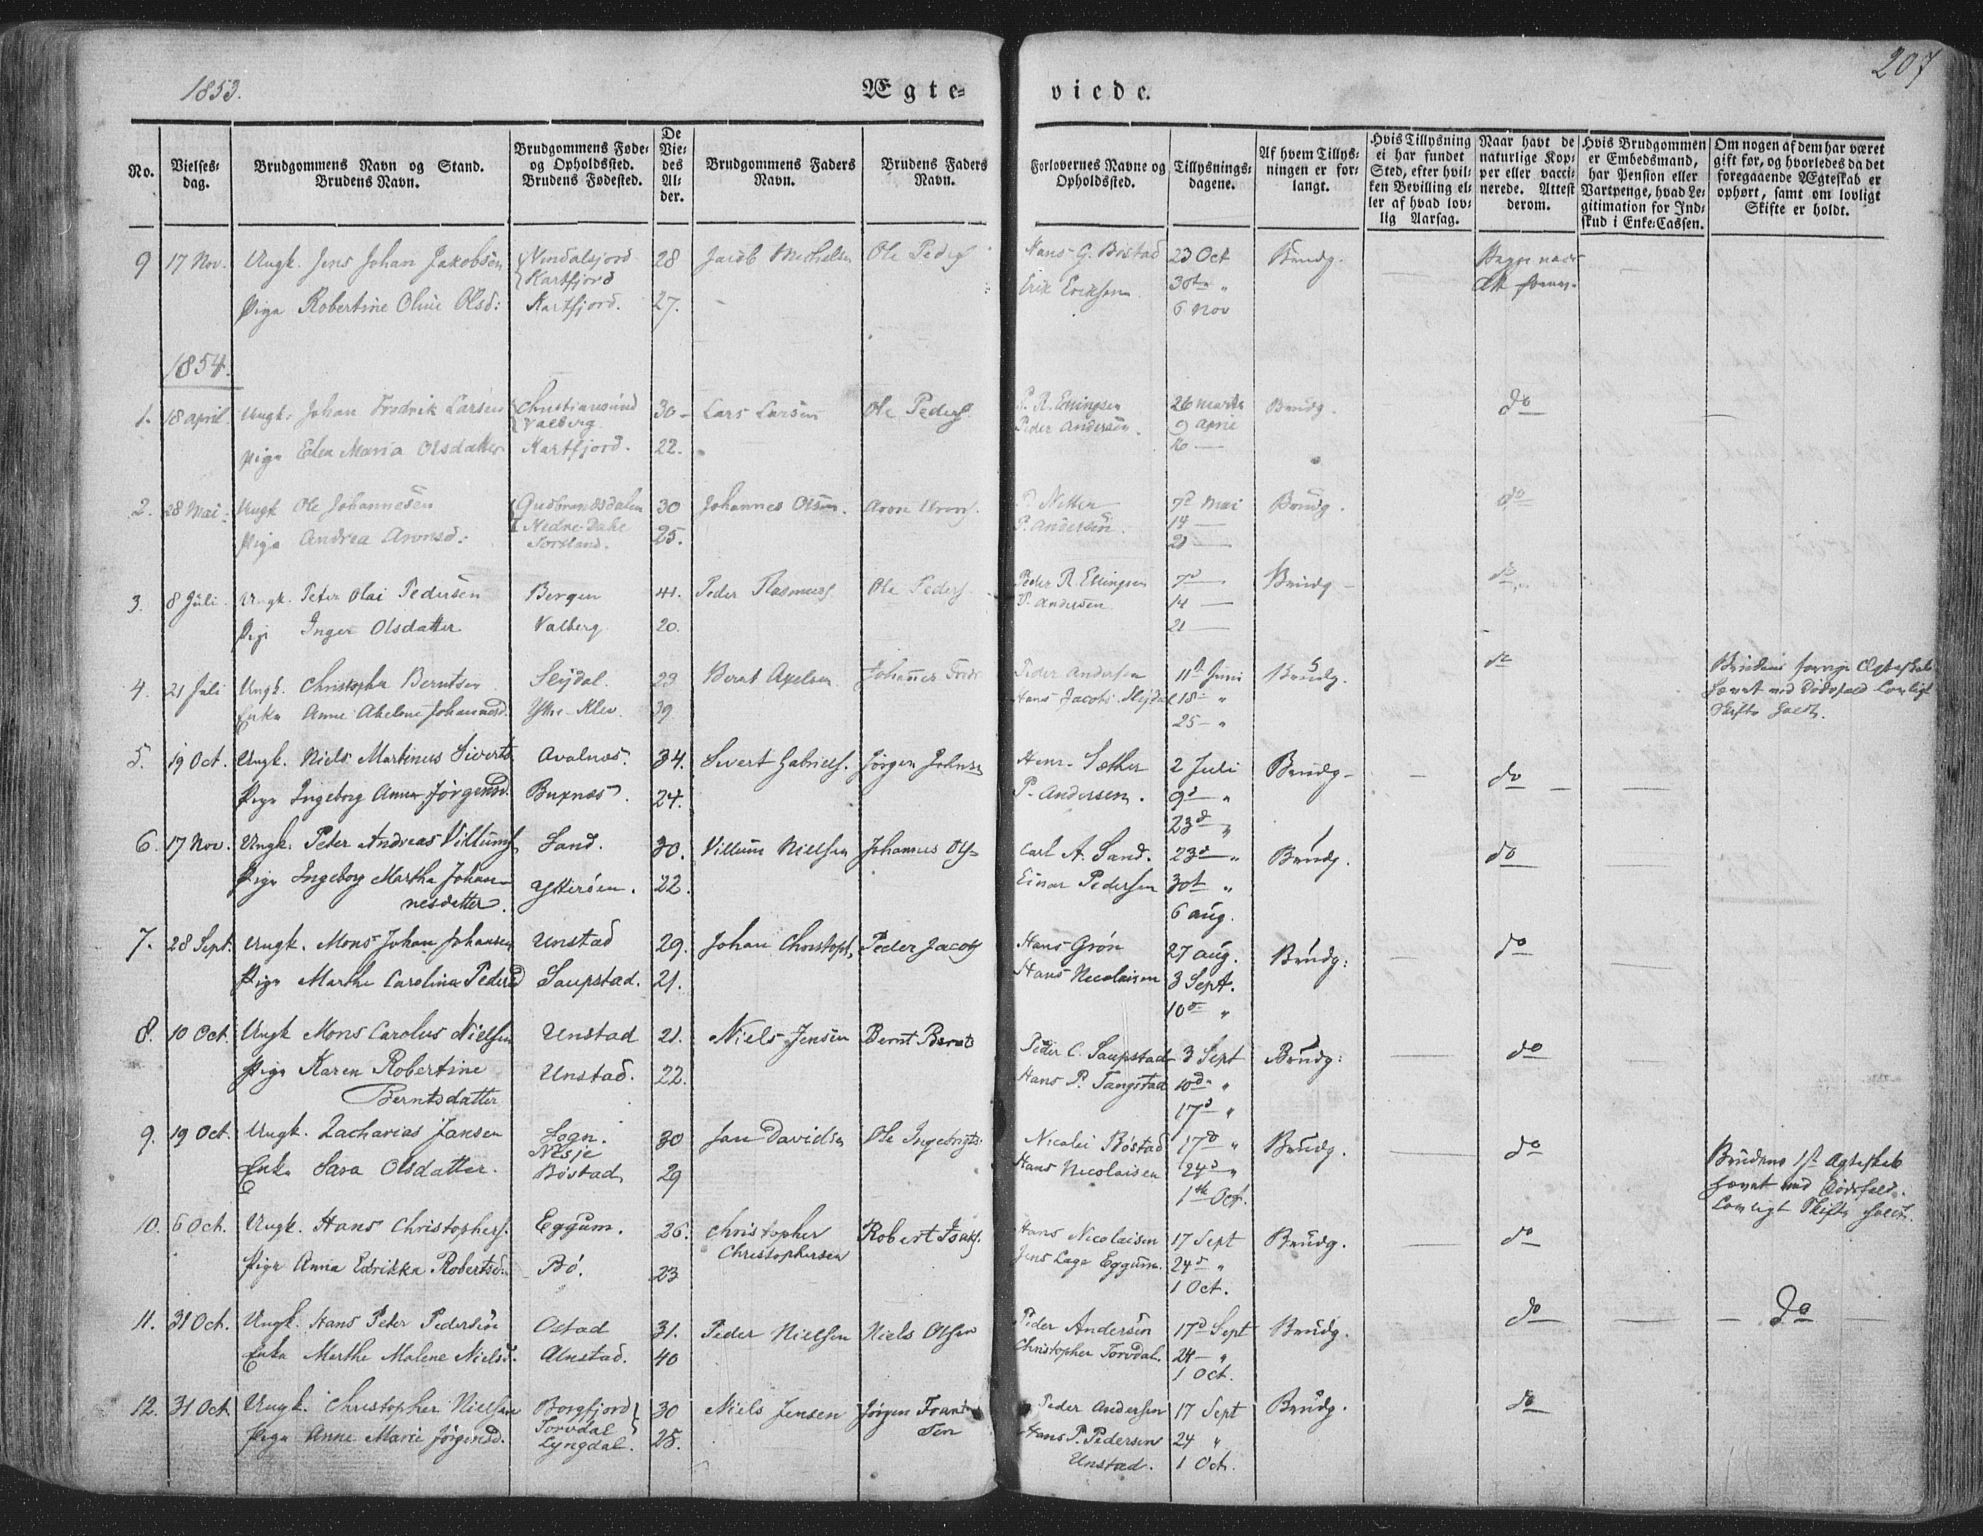 1853.
Ægte=
viede.
207
No.
Vielses=
dag.
Brudgommens Navn og Stand.
Brudens Navn.
Brudgommens Føde=
og Opholdssted.
Brudens Fødested.
De
Vie=
des
Al=
der.
Brudgommens Faders
Navn.
Brudens Faders
Navn.
Forlovernes Navne og
Opholdssted.
Tillysnings=
dagene.
Af hvem Tillys=
ningen er for=
langt.
Hvis Tillysning
ei har fundet
Sted, efter hvil=
ken Bevilling el=
ler af hvad lov=
lig Aarsag.
Naar havt de
naturlige Kop=
per eller vacci=
nerede. Attest
derom.
Hvis Brudgommen
er Embedsmand,
har Pension eller
Vartpenge, hvad Le=
gitimation for Ind=
skud i Enke-Cassen.
Om nogen af dem har været
gift før, og hvorledes da det
foregaaende Ægteskab er
ophørt, samt om lovligt
Skifte er holdt.
9 17 Nov. Ungk. Jens Johan Jakobsen Kartfjord 28 Jacob Michelsen Ole Peders Hans G. Bøstad 23 Oct Brudg.
Pige Robertine Oline Olsd: Kartfjord. 27. Erik Eriksen 30te "
6 Nov
1854.
1. 18 april Ungk. Johan Fredrik Larsen Christiansund 30 Lars Larsen Ole Peders. P. R. Ellingsen 26 Marts Brudg. do
Valberg Peder Andersen. 9 April
Pige Maria Olsdatter Kartfjord. 22. 16 —
2. 28 Mai Ungk Ole Johannesen Gudbrandsdalen 30 Johannes Olsen. Aron Arons. 7d Mai Brudg. do
Pige Andrea Aronsd: 25. P. Andersen. 14 —
21 —
3. 8 Juli. Ungk. Peter Olai Pedersen Bergen 41. Peder Rasmuss Ole Peders Peder R. Ellingsen 7d — Brudg — do
Pige Inger Olsdatter Valberg 20. P. Andersen 14 —
21 —
4. 21 Juli Ungk. Christopher Berntsen 29 Bernt Axelsen Peder Andersen 11te Juni Brudg. do Brudens forrige Ægteskab
Enke Anne Abelone Johannesd. 39 Hans Jacobs 18 — " hævet ved Dødsfald Lovligt
25 — " Skifte holdt.
5. 19 Oct. Ungk. Niels Martinus Siverts. Avalnæs. 34. Sivert Gabriels. Jørgen Johnsen Henr. Sæther 2 Juli Brudg — do
Pige Ingeborg Anna Jørgensd. Buxnæs. 24. P. Andersen. 9d — "
23d — "
6. 17 Nov. Ungk. Peder Andreas Villums. Sand. 30. Villum Nielsen Johannes Ols= Carl A. Sand. 23d — " Brudg. do
Pige Ingeborg Martha Johan= Ytterøen. 22. Einar Pedersen 30t "
nesdatter. 6 aug.
7. 28 Sept. Ungk. Mons Johan Johansen Unstad 29. Johan Christoph. Peder Jacobs Hans Grøn 27 aug. Brudg: do
Pige Marthe Carolina Pedersd Saupstad. 21. Hans Nicolaisen 3 Sept.
10d "
8. 10 Oct. Ungk Mons Carolus Nielsen Unstad 21. Niels Jensen Bernt Bernts Peder C. Saupstad 3 Sept Brudg: do
Pige Karen Robertine Unstad. 22. Hans P. Tangstad 10d "
Berntsdatter 17d "
9. 19 Oct. Ungk. Zacharias Jansen Sogn. 30 Jan Davidsen Ole Ingebrigts. Nicolai Bøstad 17d " Brudg. do Brudens 1st Ægteskab
Nesje
Enke Sara Olsdatter. Bøstad 29 Hans Nicolaisen 24d " hævet ved Dødsfald.
1ste Oct. Lovligt Skifte holdt.
10. 6 Oct. Ungk. Hans Christophers. Eggum. 26. Christopher Robert Isaks. Hans Nicolaisen 17 Sept Brudg. do
Christophersen Jens Lage Eggum. 24d "
Pige Anna Edrikka Robertsd. Bø. 23 1 Oct.
11. 31 Oct. Ungk. Hans Peter Pedersen Ostad 31. Peder Nielsen Niels Olsen Peder Andersen 17d Sept Brudg. do — do —
Enke Marthe Malene Nielsd. Alnstad. 40 Christopher Torvdal. 24 — "
1 Oct.
12. 31 Oct. Ungk. Christopher Nielsen Borgfjord 30 Niels Jensen Jørgen Peder Andersen 17 Sept Brudg. do
Torvdal
Pige Anne Marie Jørgensd. Lyngdal. 25. Hans P. Pedersen 24 "
Unstad. 1 Oct.